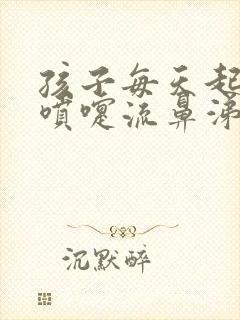 孩子每天起
喷嚏流鼻涕
沉默醉